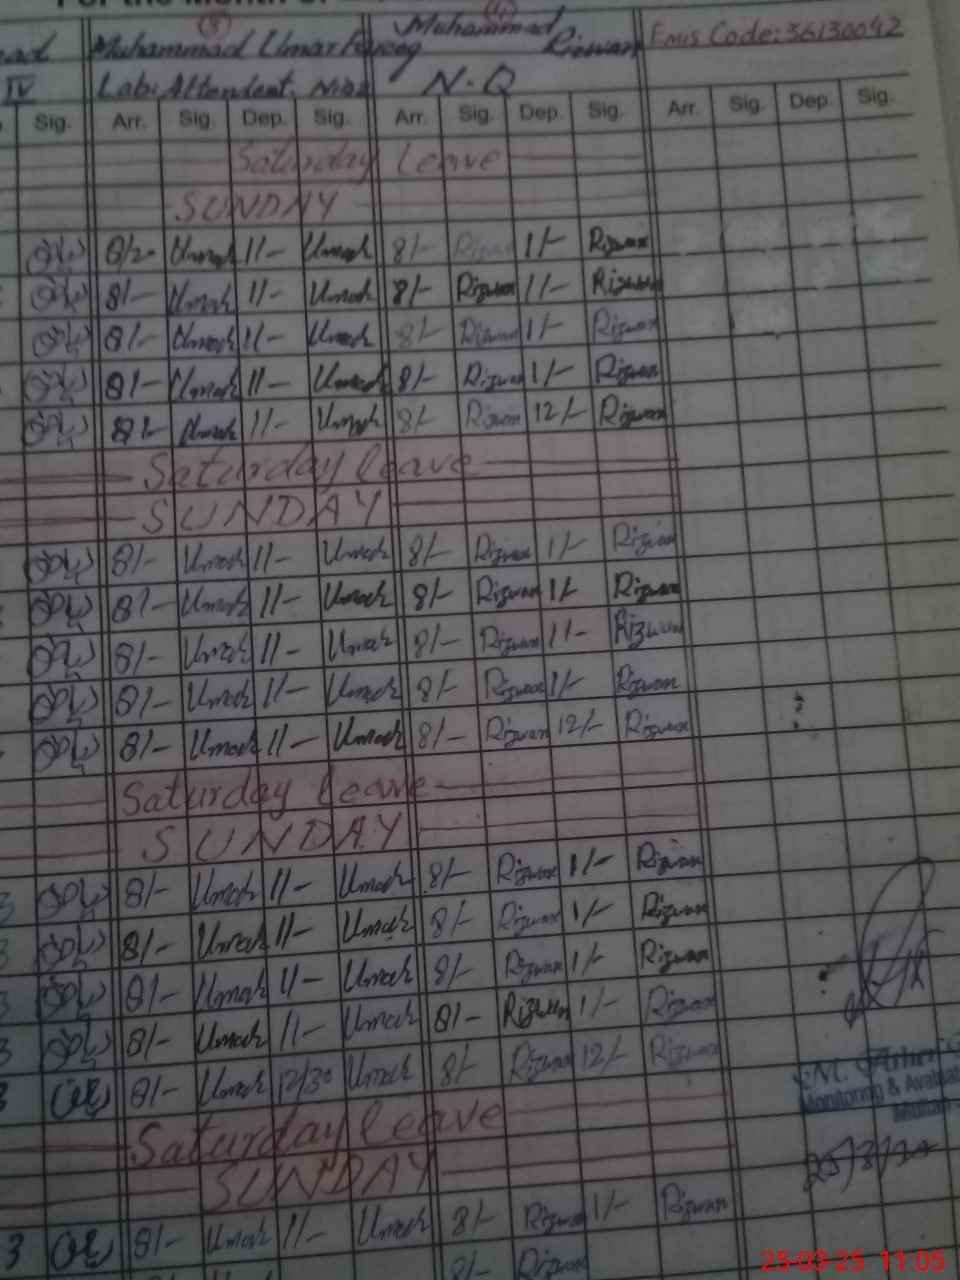 For the Month of
(3) (4)
Muhammad Umar Farooq Muhammad Rizwan Emis Code: 36130042
IV Lab: Attendent. N-Q
Sig. Arr. Sig. Dep. Sig. Arr. Sig. Dep. Sig. Arr. Sig. Dep. Sig.
Saturday Leave
SUNDAY
Umar 11/- Umar 8/- Rizwan 1/- Rizwan
8/- Umar 11/- Umar 8/- Rizwan 1/- Rizwan
8/- Umar 11/- Umar 8/- Rizwan 1/- Rizwan
8/- Umar 11/- Umar 8/- Rizwan 1/- Rizwan
8/- Umar 11/- Umar 8/- Rizwan 12/- Rizwan
Saturday leave
SUNDAY
8/- Umar 11/- Umar 8/- Rizwan 1/- Rizwan
8/- Umar 11/- Umar 8/- Rizwan 1/- Rizwan
8/- Umar 11/- Umar 8/- Rizwan 1/- Rizwan
8/- Umar 11/- Umar 8/- Rizwan 1/- Rizwan
8/- Umar 11/- Umar 8/- Rizwan 12/- Rizwan
Saturday leave
SUNDAY
8/- Umar 11/- Umar 8/- Rizwan 1/- Rizwan
8/- Umar 11/- Umar 8/- Rizwan 1/- Rizwan
8/- Umar 11/- Umar 8/- Rizwan 1/- Rizwan
8/- Umar 11/- Umar 8/- Rizwan 1/- Rizwan
8/- Umar 12/30 Umar 8/- Rizwan 12/- Rizwan
Monitoring &
Saturday leave
SUNDAY
3 8/- Umar 11/- Umar 8/- Rizwan 1/- Rizwan
8/- Rizwan
25-03-25 11:05